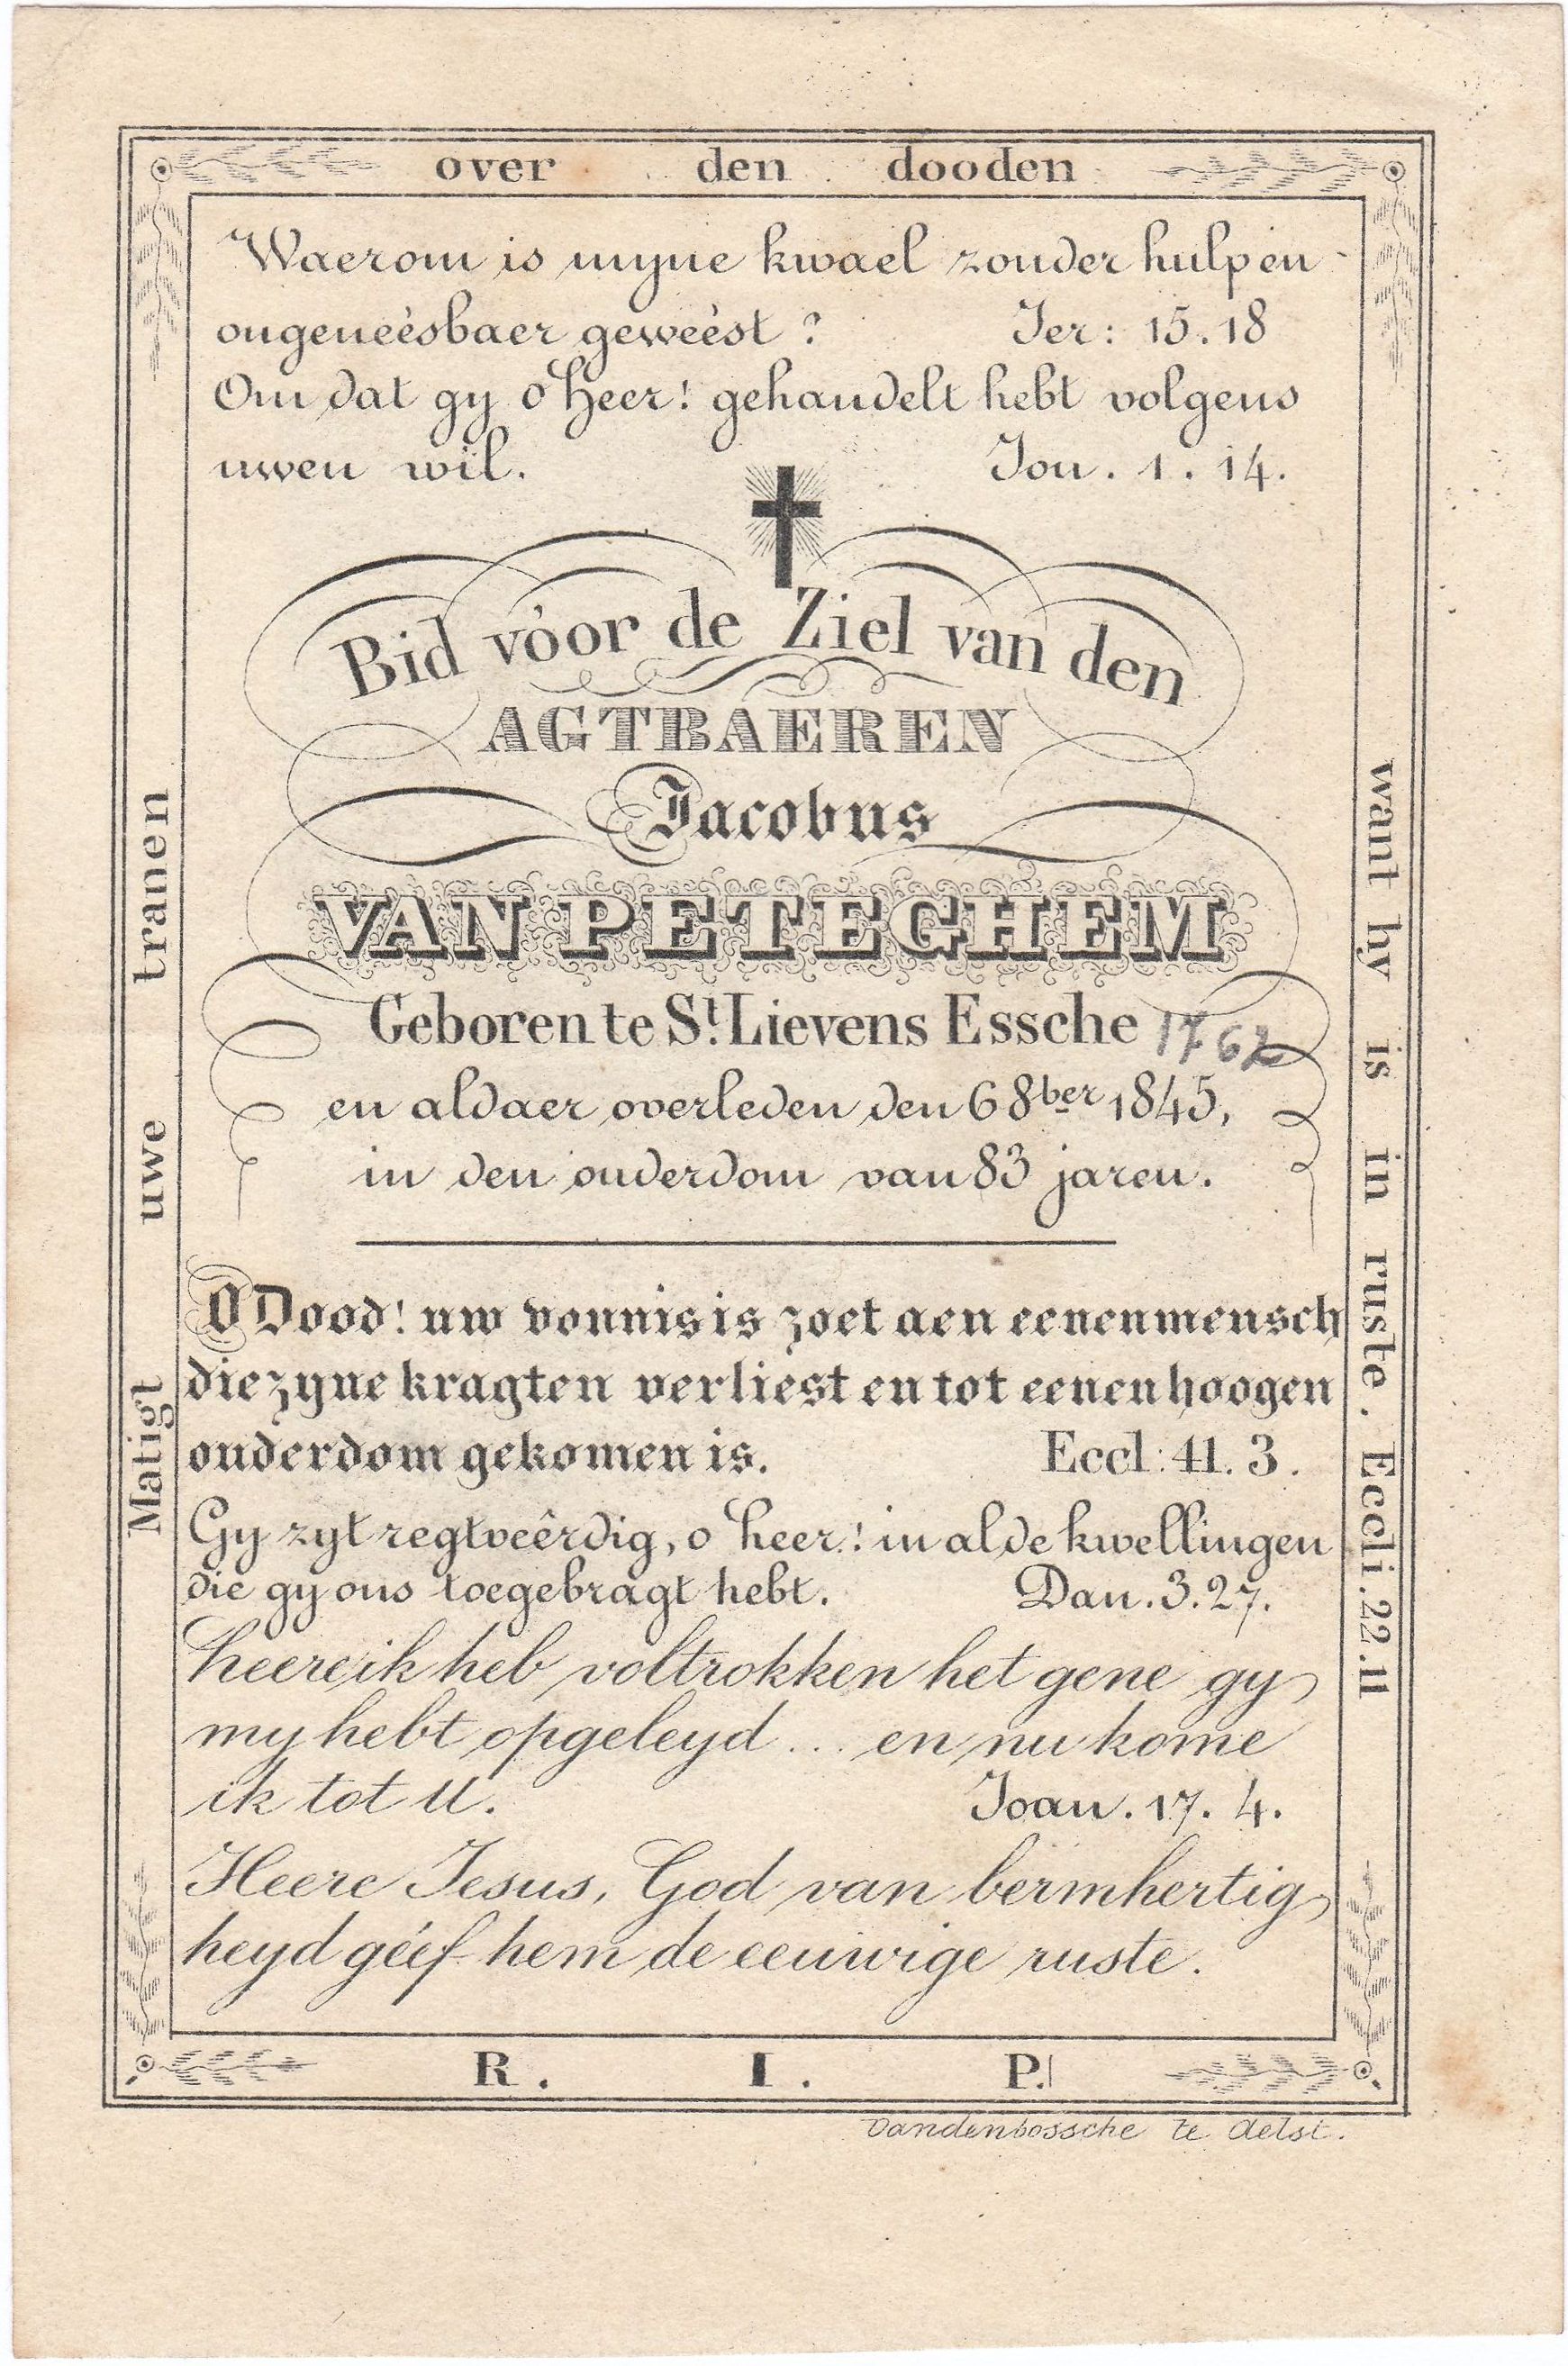 Matigt uwe tranen
over den dooden
want hy is in ruste. Eccli.22.11
Waerom is myne kwael zonder hulp en
ongeneésbaer geweést ? Jer: 15.18
Om dat gy o Heer! gehandelt hebt volgens
uwen wil. Jon. 1. 14.
Bid vóor de Ziel van den
AGTBAEREN
Jacobus
VAN PETEGHEM
Geboren te St. Lievens Essche 1762
en aldaer overleden den 6 8ber 1845,
in den ouderdom van 83 jaren.
O Dood! uw vonnis is zoet aen eenen mensch
die zyne kragten verliest en tot eenen hoogen
ouderdom gekomen is. Eccl: 41. 3.
Gy zyt regtveêrdig, o heer! in al de kwellingen
die gy ons toegebragt hebt. Dan. 3. 27.
heere ik heb voltrokken het gene gy
my hebt opgeleyd ... en nu kome
ik tot U. Joan. 17. 4.
Heere Jesus, God van bermhertig
heyd géef hem de eeuwige ruste.
R. I. P.
Vandenbossche te Aelst.